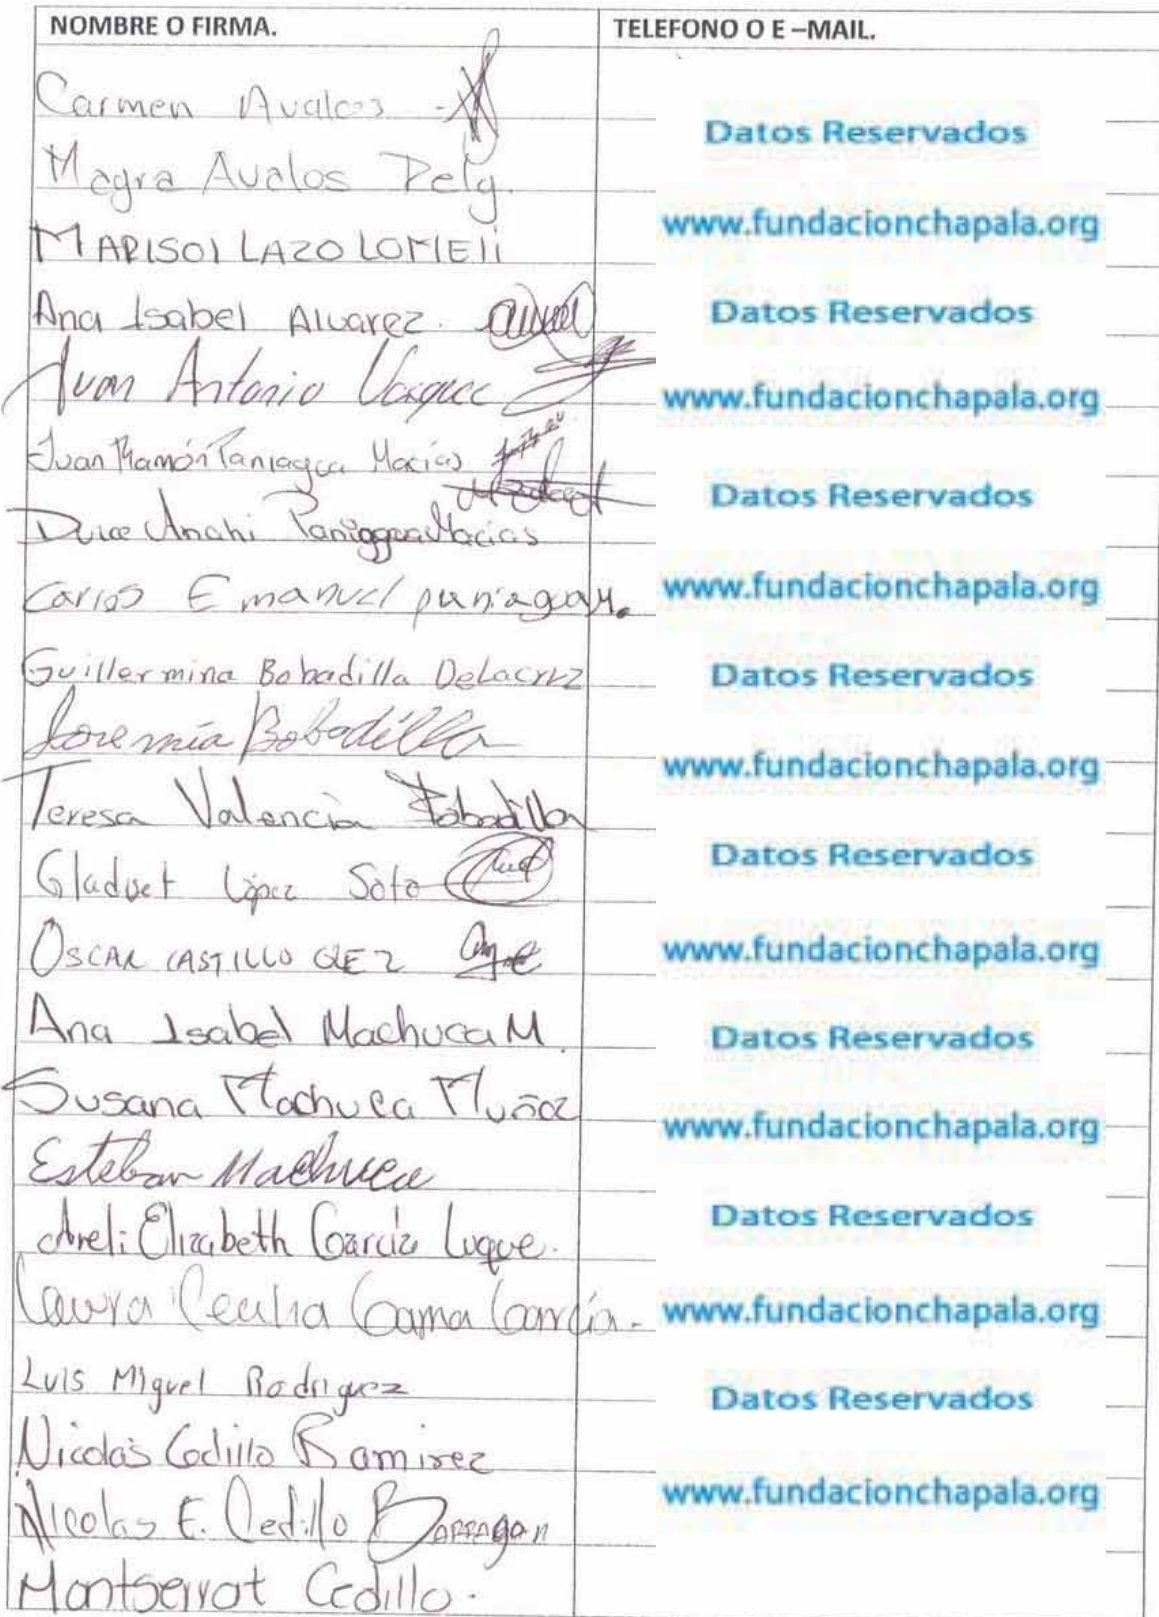 NOMBRE O FIRMA. TELEFONO O E –MAIL.
Carmen Avalos
Datos Reservados
Magra Avalos Delg.
www.fundacionchapala.org
MARISOl LAZO LOMElí
Ana Isabel Alvarez.
Datos Reservados
Juan Antonio Vasquez
www.fundacionchapala.org
Juan Ramón Paniagua Macías
Datos Reservados
Dulce Anahi Paniagua Macias
Carlos Emanuel paniagua M.
www.fundacionchapala.org
Guillermina Bobadilla Delacruz
Datos Reservados
Bobadilla
www.fundacionchapala.org
Teresa Valencia Bobadilla
Datos Reservados
López Soto
OSCAR CASTILLO
www.fundacionchapala.org
Ana Isabel Machuca M.
Datos Reservados
Susana Machuca Muñoz
www.fundacionchapala.org
Esteban Machuca
Areli Elizabeth García Luque.
Datos Reservados
Laura Cecilia Gama García.
www.fundacionchapala.org
Luis Miguel Rodriguez
Datos Reservados
Nicolás Cedillo Ramirez
www.fundacionchapala.org
Nicolas E. Cedillo Barragan
Montserrat Cedillo.